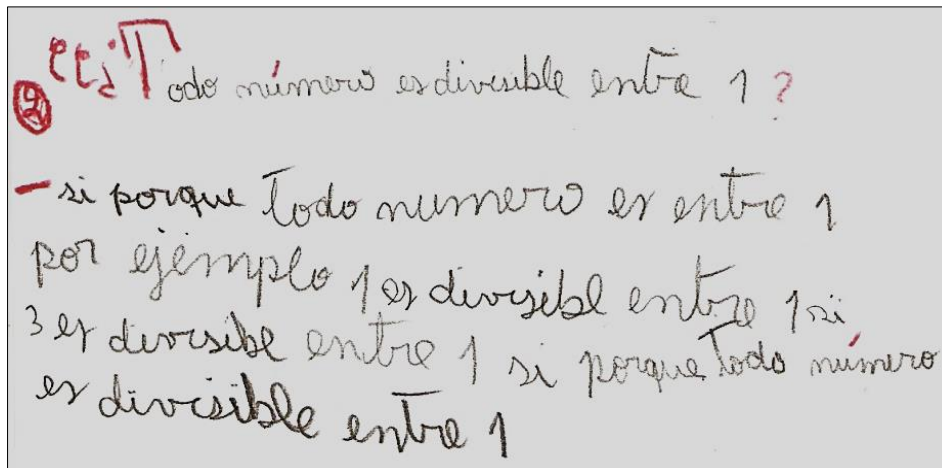 ¿Todo número es divisible entre 1?
- si porque todo numero es entre 1
por ejemplo 1 es divisibl entre 1 si
3 es divisible entre 1 si porque todo número
es divisible entre 1